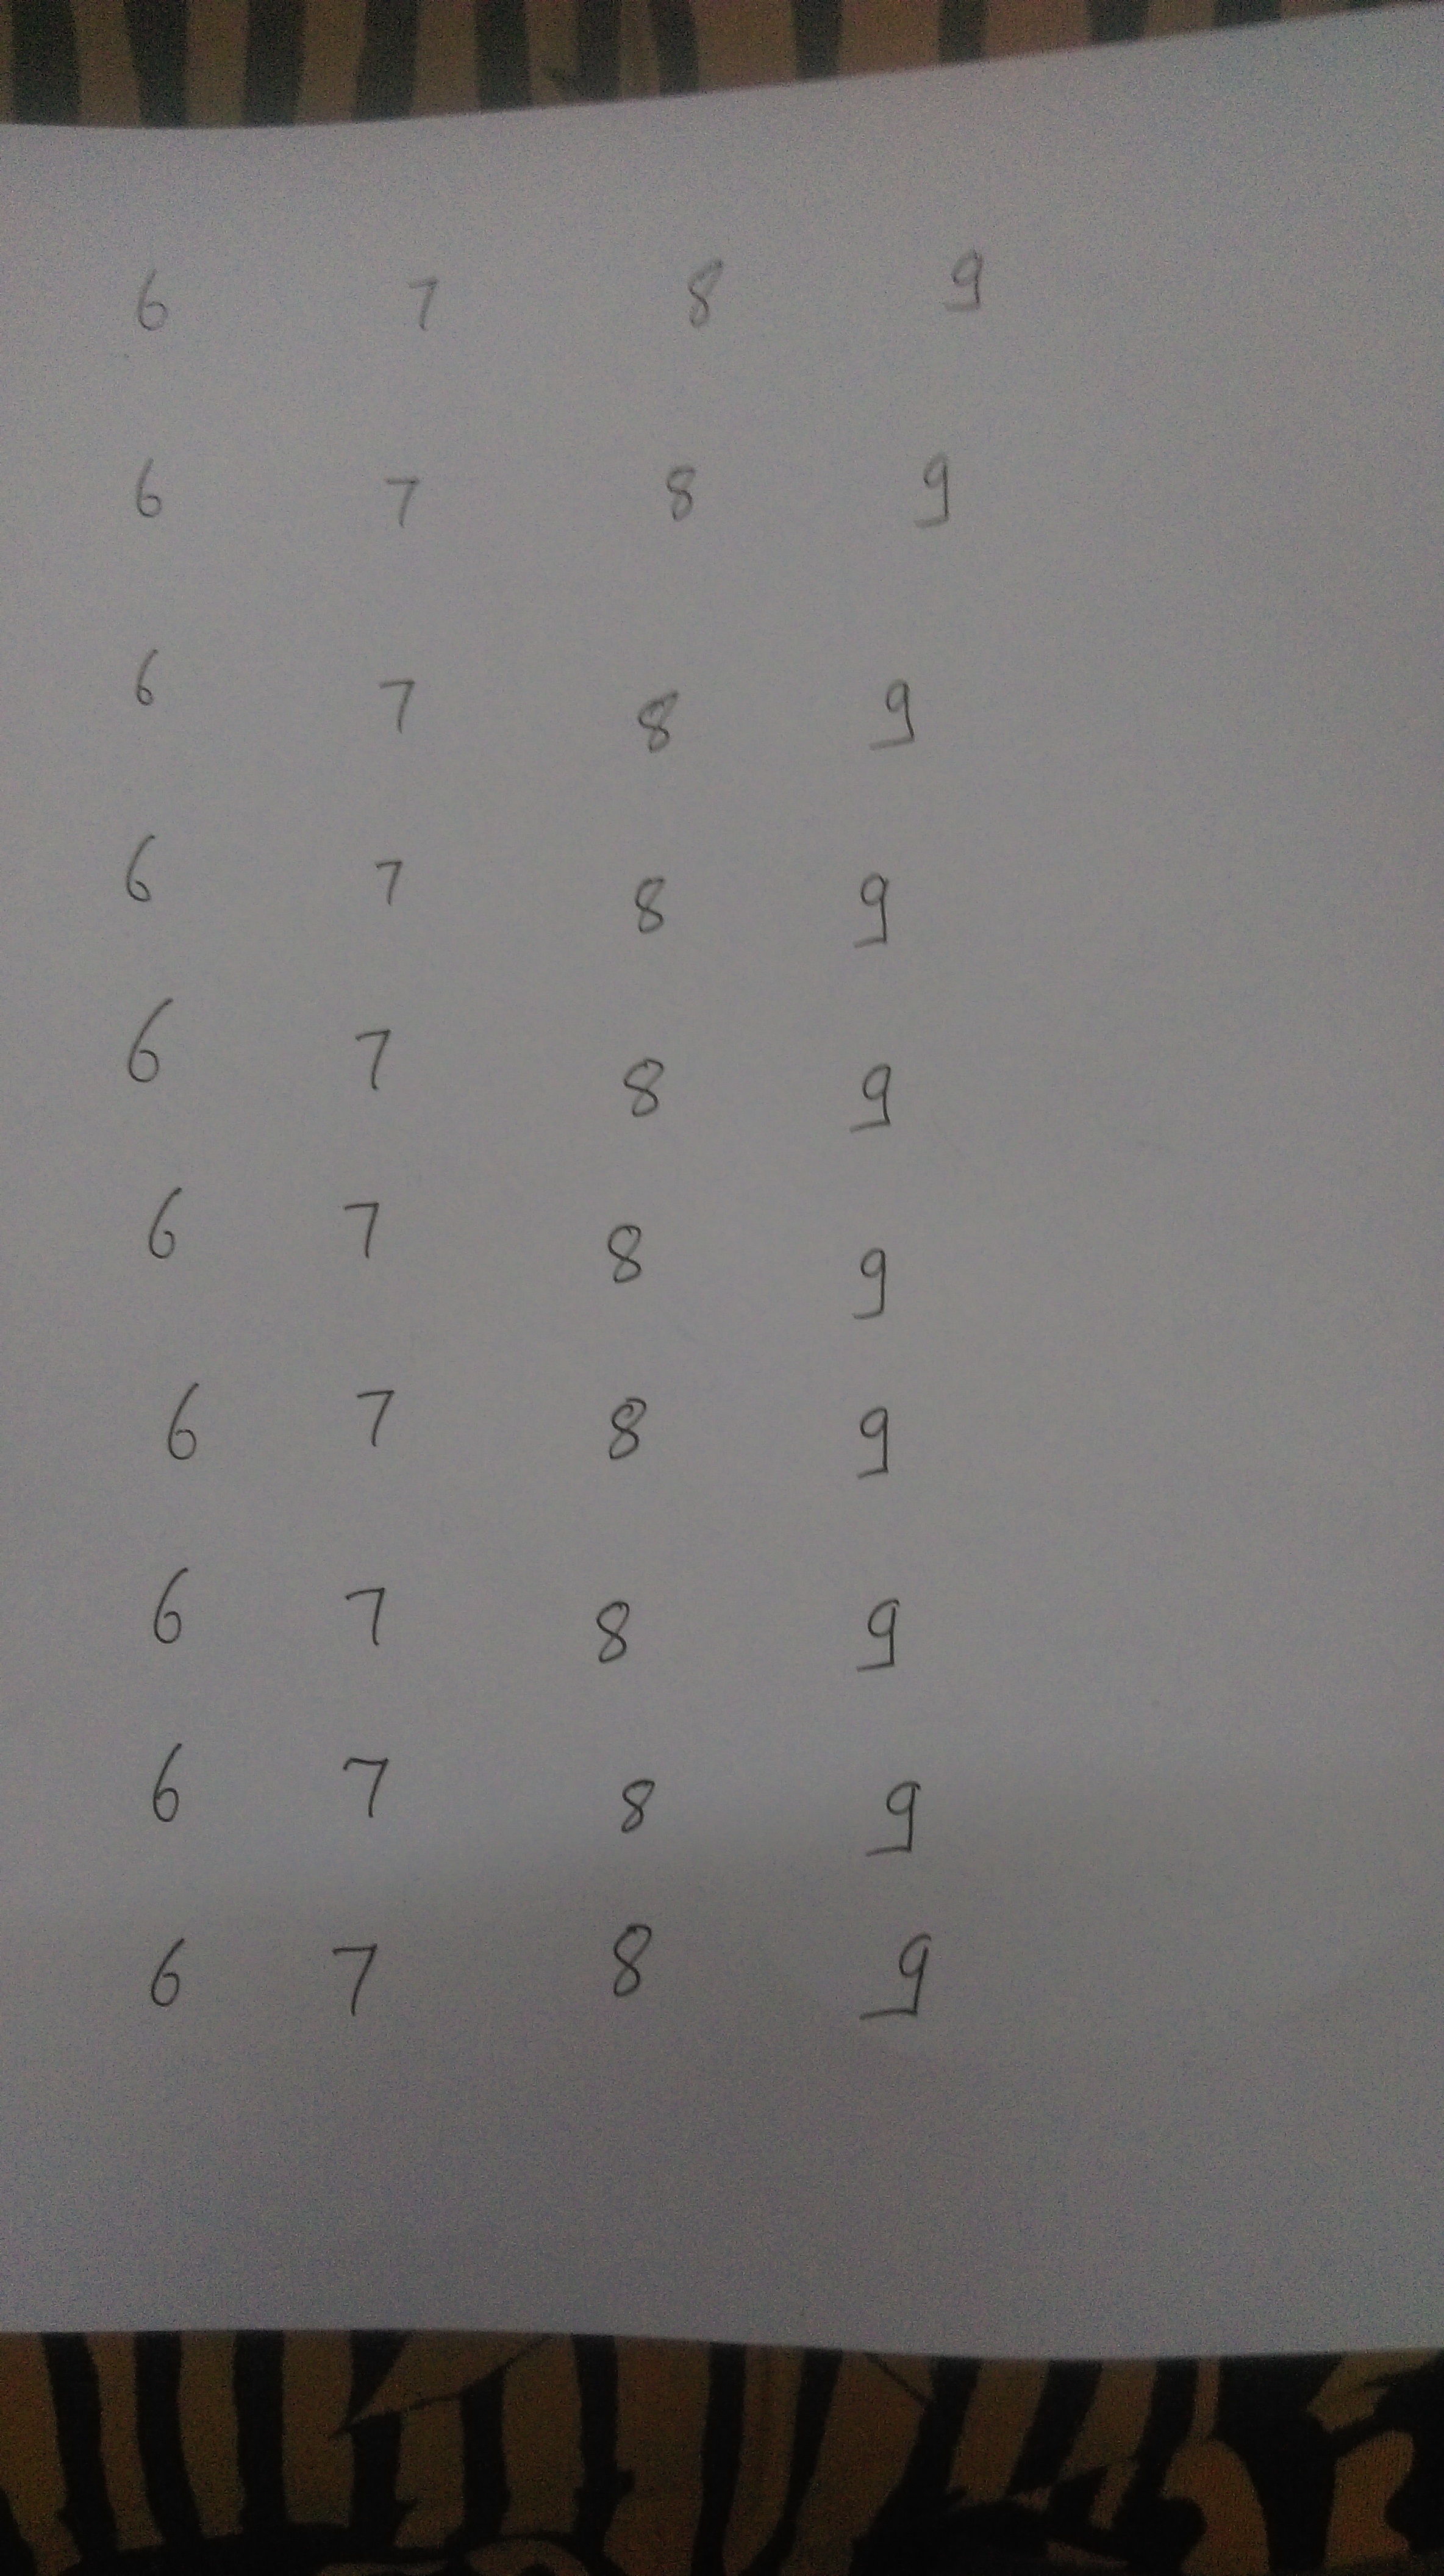 6 7 8 9
6 7 8 9
6 7 8 9
6 7 8 9
6 7 8 9
6 7 8 9
6 7 8 9
6 7 8 9
6 7 8 9
6 7 8 9